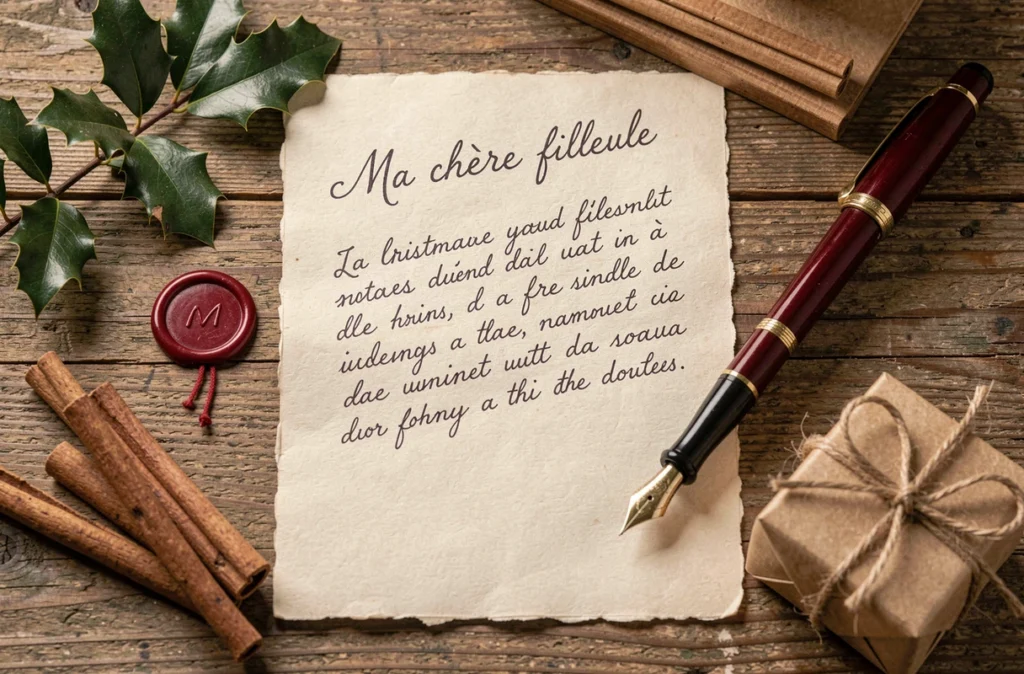 Ma chère filleule
La lristmave yaud filesmlit
notaes duénd dal uat in à
dle hrins, d a fre sindle de
iudemgs a tlae, namouet cis
dae uuninet uutt da soaua
duor fohny a thi the doutees.
M